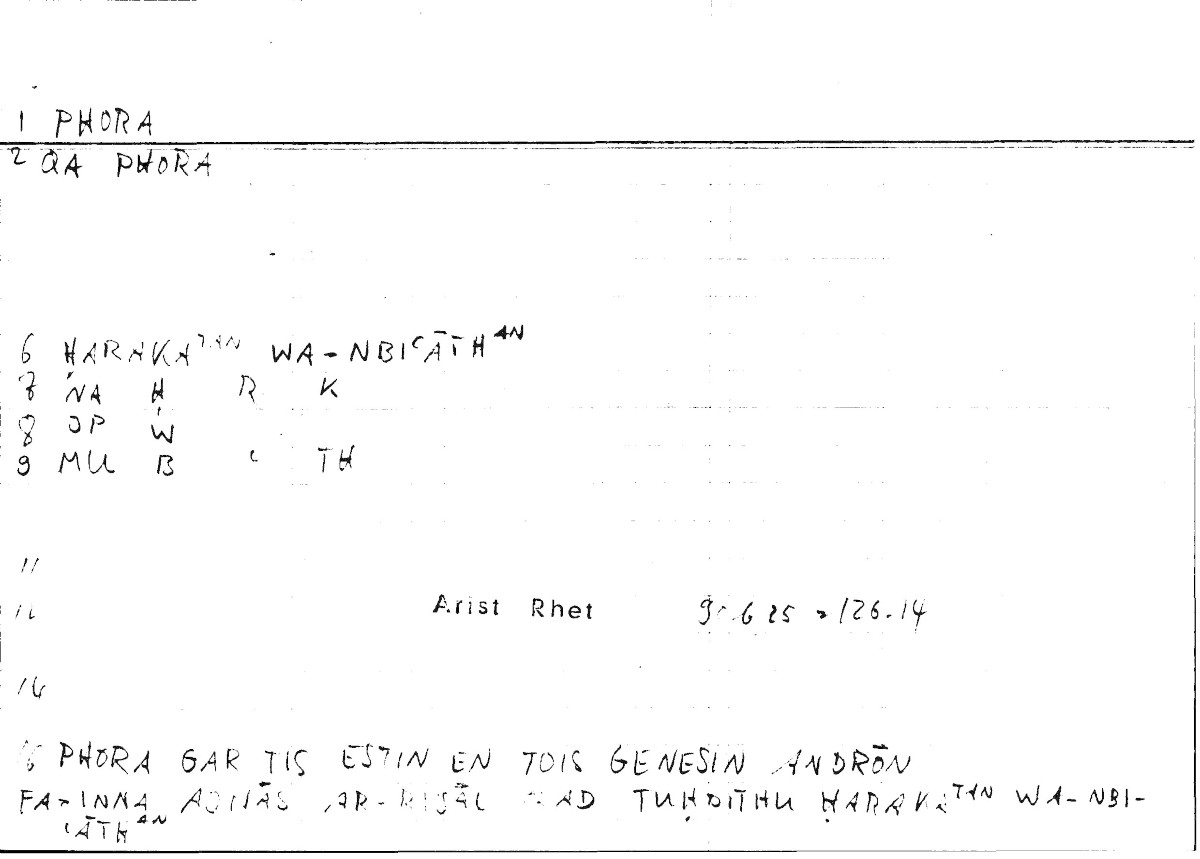 1 PHORA
2 QA PHORA
6 ḤARAKAᵀᴬᴺ WA-NBIʿĀTHᴬᴺ
7 NA Ḥ R K
8 OP W
9 MU B ʿ TH
11
Arist Rhet 25 = 126.14
PHORA GAR TIS ESTIN EN TOIS GENESIN ANDRŌN
FA-INNA AR-RIJĀL TUḤDITHU ḤARAKAᵀᴬᴺ WA-NBI-
ʿĀTHᴬᴺ